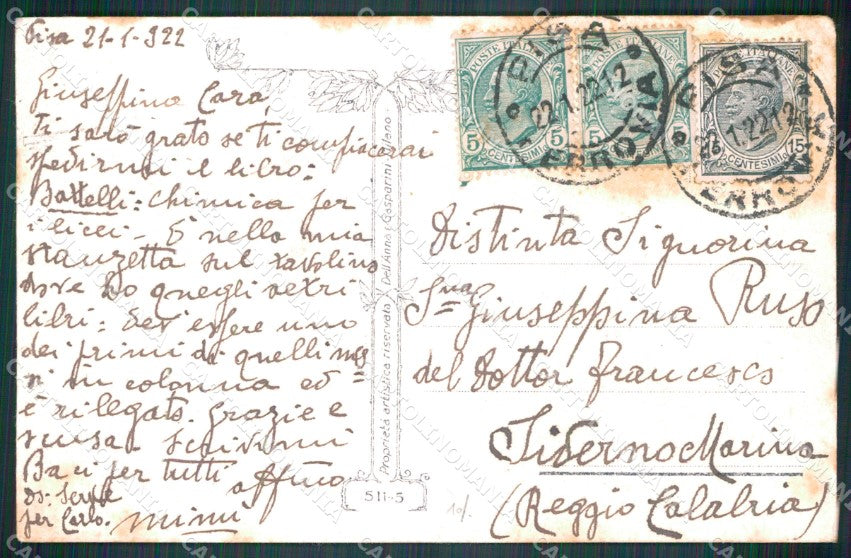 Pisa 21-1-922
Giuseppina Cara,
Ti sarò grato se ti compiacerai
spedirmi il libro:
Battelli: chimica per
i licei - È nella mia
stanzetta sul tavolino
dove ho quegli altri
libri: dev'essere uno
dei primi di quelli mes
si in colonna ed
è rilegato. Grazie e
scusa. Scrivimi
Baci per tutti
affmo
per Carlo. Mimì
POSTE ITALIANE
5 CENTESIMI 5
POSTE ITALIANE
5 CENTESIMI
POSTE ITALIANE
15 CENTESIMI 15
PISA
22.1.22 12
FERROVIA
PISA
22.1.22 12
FERROVIA
Distinta Signorina
Sigª Giuseppina Ruso
del Dottor Francesco
Siderno Marina
(Reggio Calabria)
Proprietà artistica riservata Dell'Anna & Gasparini Milano
511-5
CARTOLINOMANIA